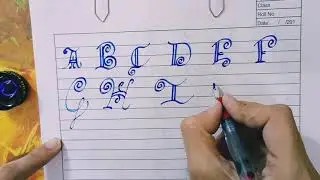 Class
Roll No
Date / /201
A B C D E F
G H I